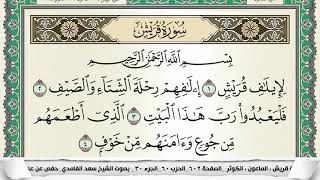 سُورَةُ قُرَيْشٍ
بِسْمِ اللَّهِ الرَّحْمَٰنِ الرَّحِيمِ
لِإِيلَٰفِ قُرَيْشٍ ١ إِۦلَٰفِهِمْ رِحْلَةَ الشِّتَآءِ وَالصَّيْفِ ٢
فَلْيَعْبُدُوا۟ رَبَّ هَٰذَا الْبَيْتِ ٣ الَّذِىٓ أَطْعَمَهُم
مِّن جُوعٍ وَءَامَنَهُم مِّنْ خَوْفٍۭ ٤
قريش ، الماعون ، الكوثر . الصفحة ٦٠٢ الحزب ٦٠ الجزء ٣٠ . بصوت الشيخ سعد الغامدي . حفص عن عا